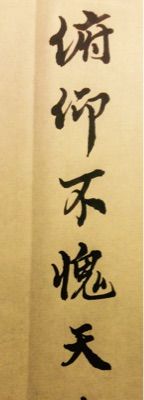 俯仰不愧天